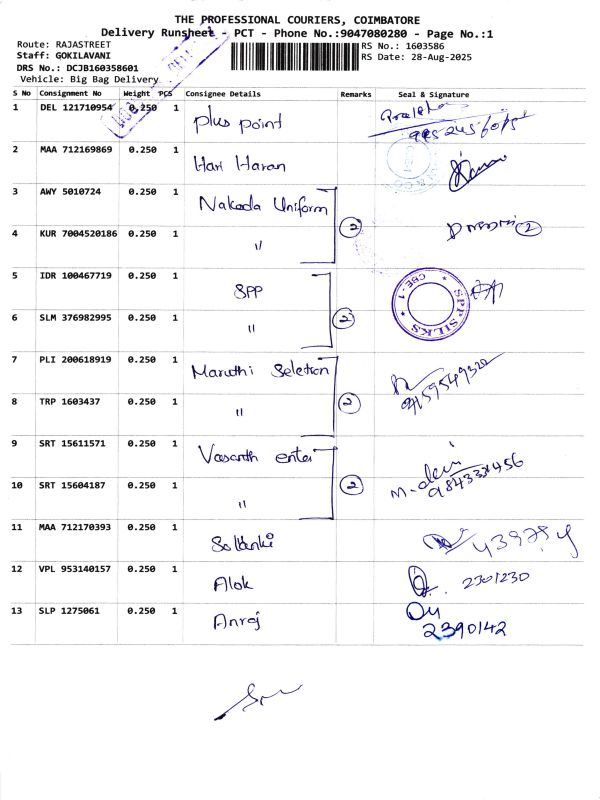 THE PROFESSIONAL COURIERS, COIMBATORE
Delivery Runsheet - PCT - Phone No.:9047080280 - Page No.:1
Route: RAJASTREET
Staff: GOKILAVANI
DRS No.: DCJB160358601
Vehicle: Big Bag Delivery
RS No.: 1603586
RS Date: 28-Aug-2025
S No Consignment No Weight PCS Consignee Details Remarks Seal & Signature
1 DEL 121710954 0.250 1 Plus point
2 MAA 712169869 0.250 1 Hari Haran
3 AWY 5010724 0.250 1 Nakoda Uniform
4 KUR 7004520186 0.250 1 " 2 2
5 IDR 100467719 0.250 1 SPP
SPP SILKS CBE-1
6 SLM 376982995 0.250 1 " 2
7 PLI 200618919 0.250 1 Maruthi Seletion
8 TRP 1603437 0.250 1 " 2
9 SRT 15611571 0.250 1 Vasanth enter
10 SRT 15604187 0.250 1 " 2
11 MAA 712170393 0.250 1 Solanki
12 VPL 953140157 0.250 1 Alok 2301230
13 SLP 1275061 0.250 1 Anraj 2390142